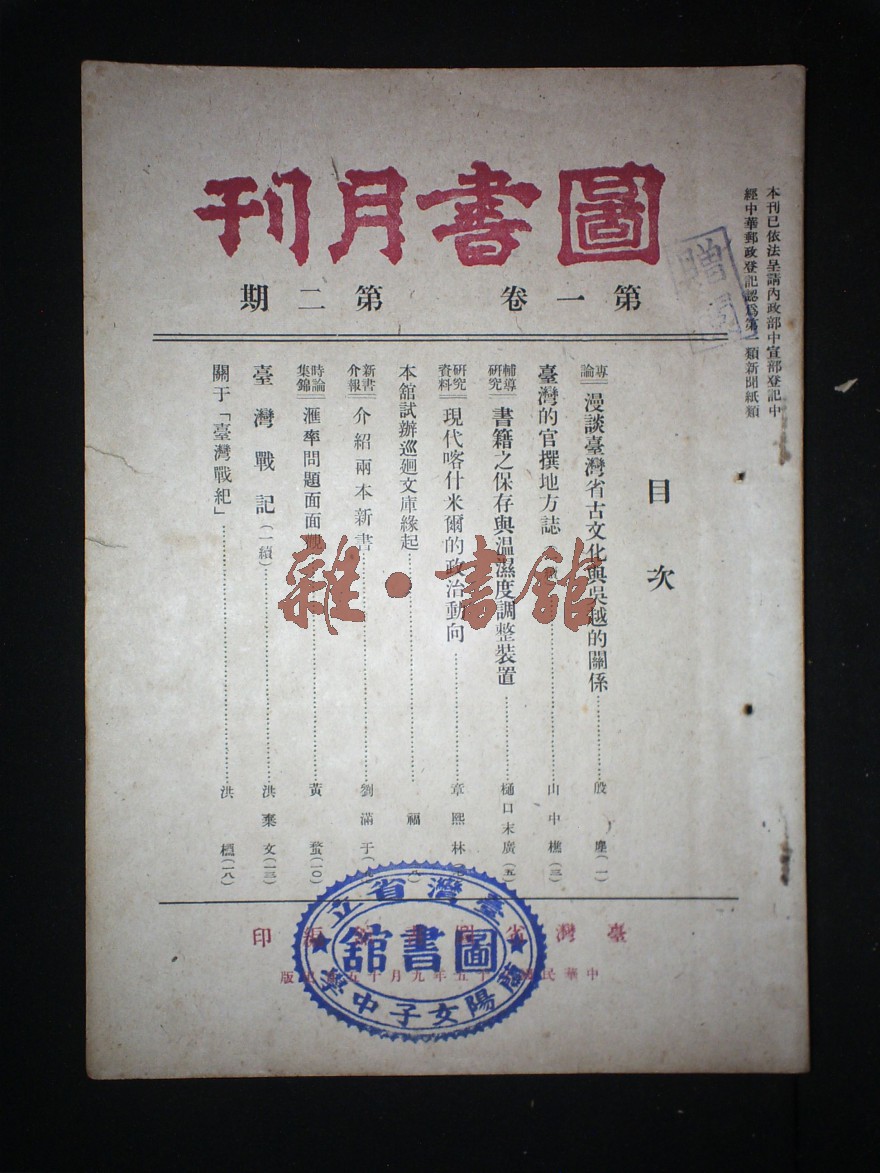 圖書月刊
第一卷 第二期
本刊已依法呈請內政部中宣部登記中
經中華郵政登記認爲第一類新聞紙類
目次
專論 漫談臺灣省古文化與吳越的關係 殷塵(一)
臺灣的官撰地方誌 山中樵(三)
輔導研究 書籍之保存與溫濕度調整裝置 樋口末廣(五)
研究資料 現代喀什米爾的政治動向 章熙林
本舘試辦巡廻文庫緣起 福
新書介報 介紹兩本新書 劉滿子
時論集錦 滙率問題面面觀 黃蝥(一〇)
臺灣戰記(一續) 洪棄文(一三)
關于「臺灣戰紀」 洪槱(一八)
臺灣省圖 編印
中華民 十五年九月十五 版
贈
雜·書舘
臺灣省立
圖書舘
蘭陽女子中學